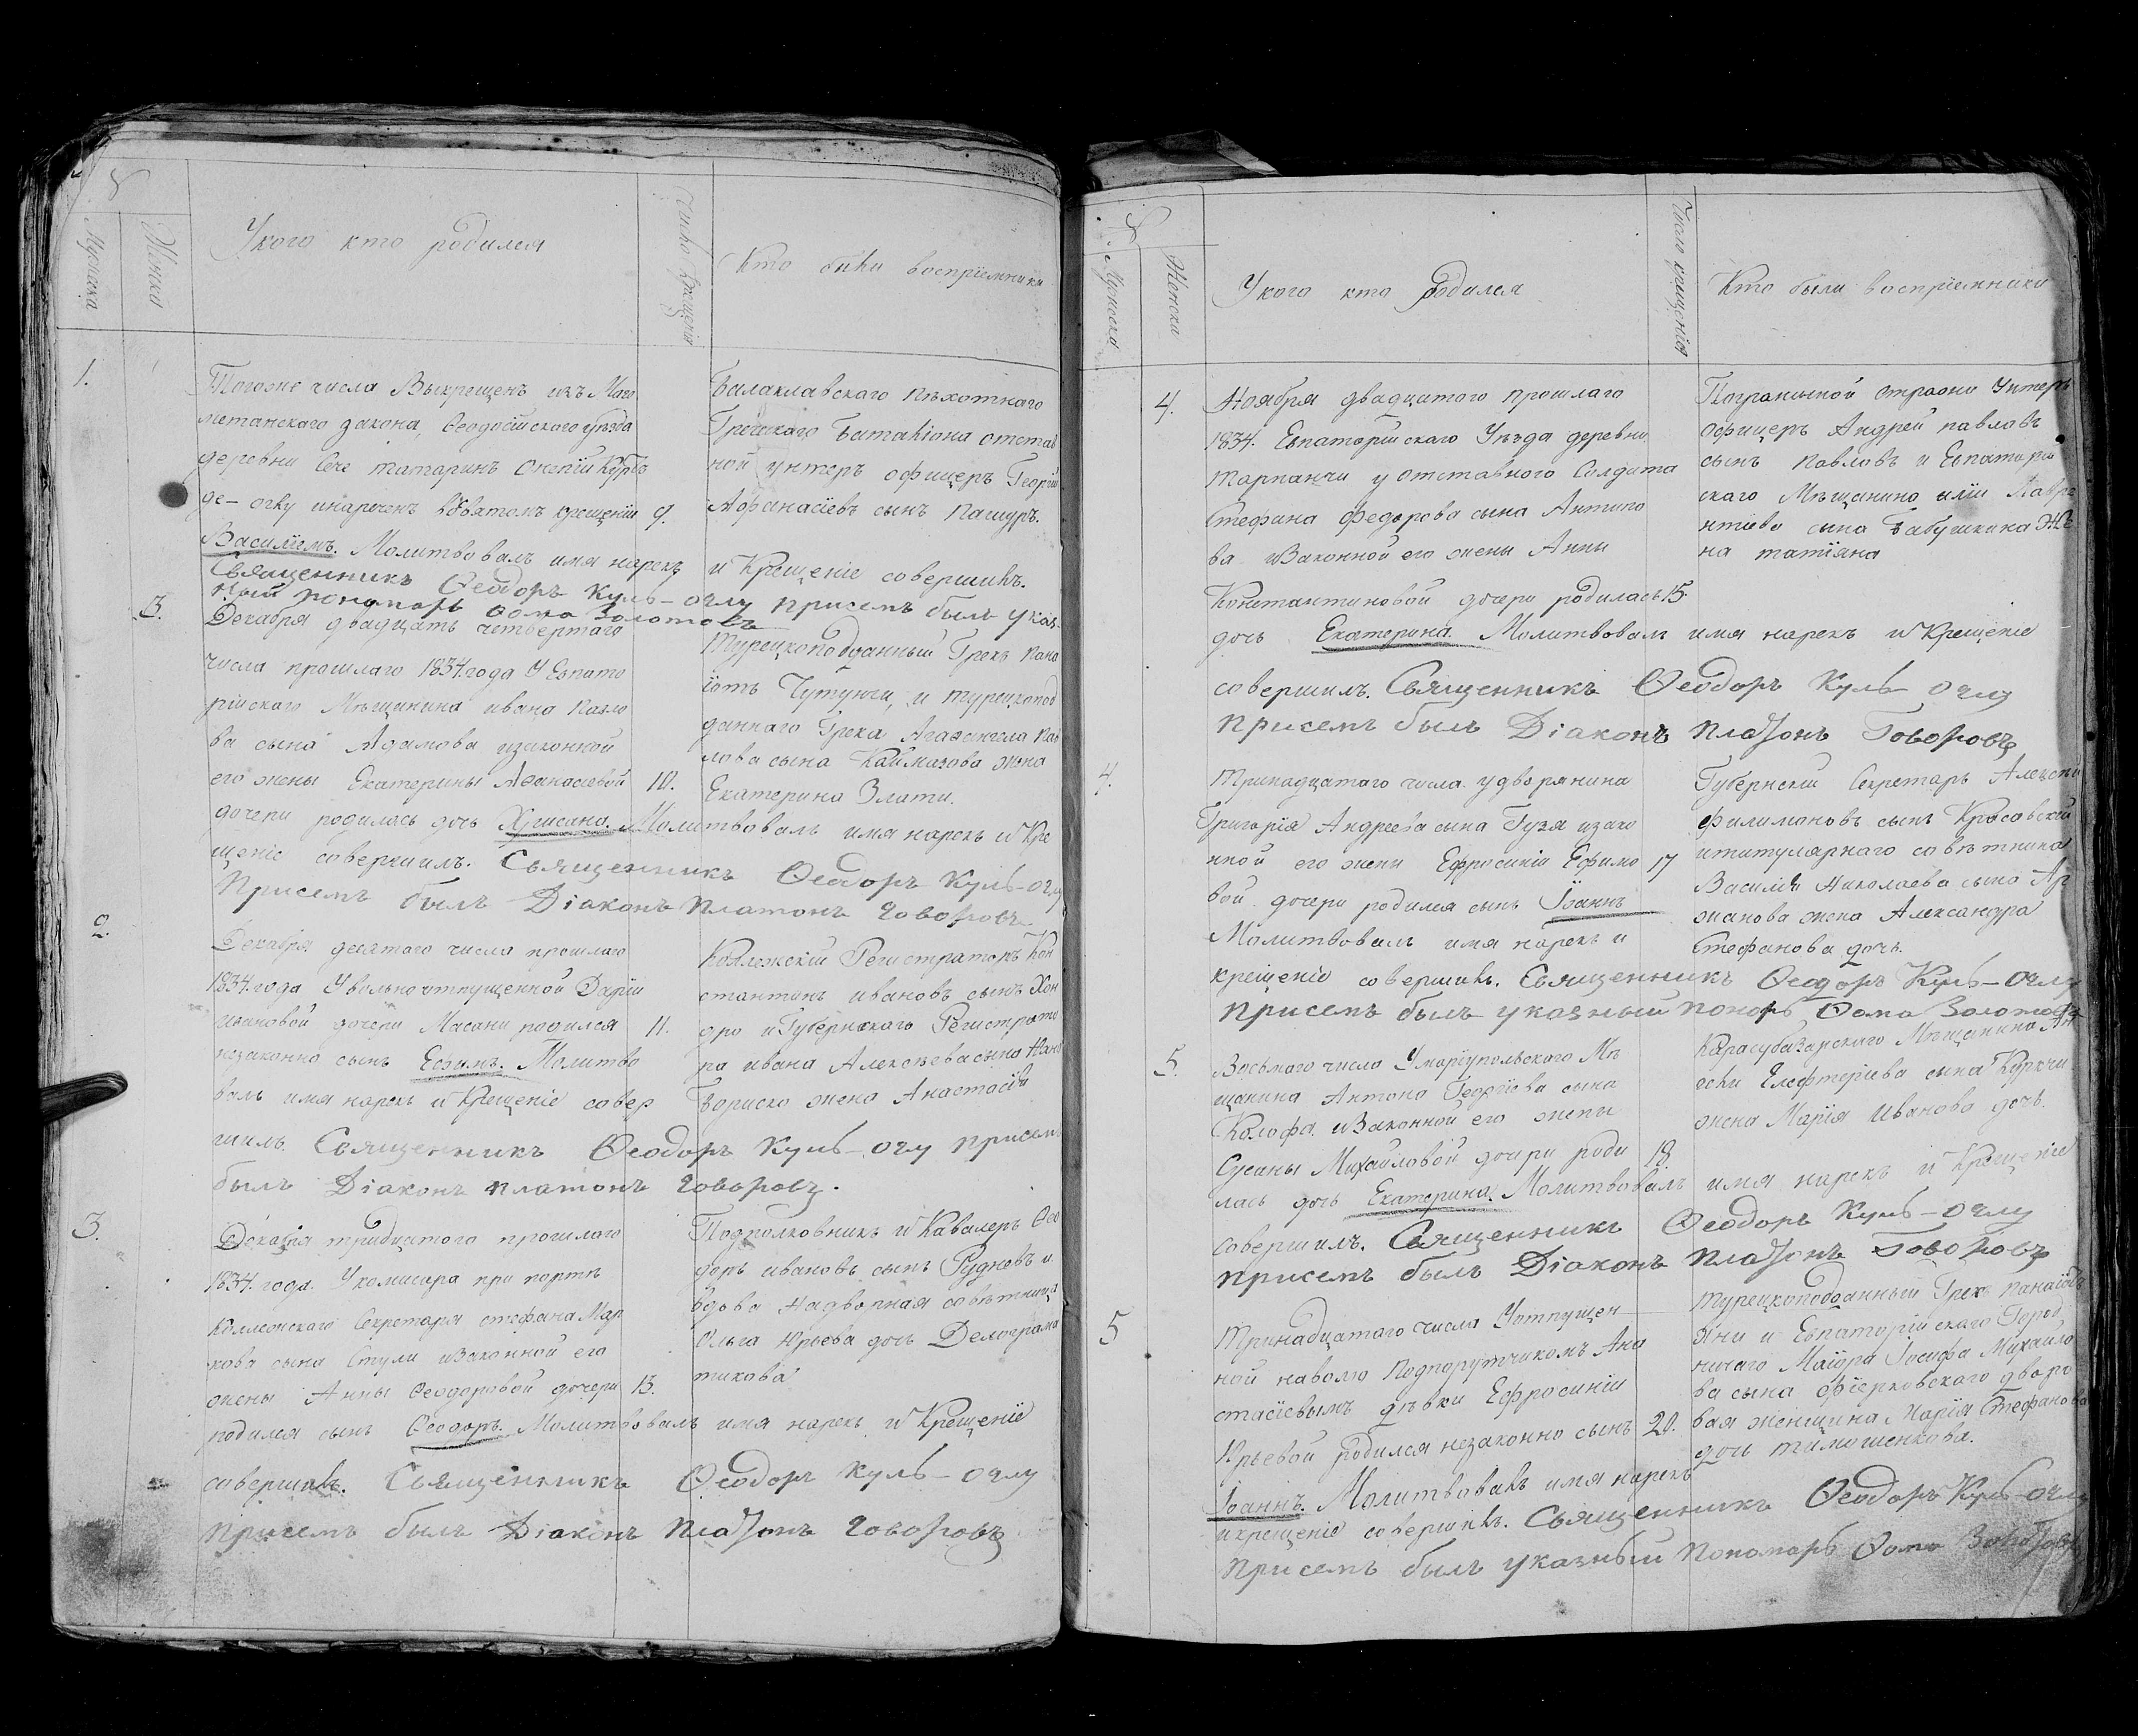 №
Мужеска
Женска
У кого кто родился
Число Крещенія
Кто были воспріемники
1.
Тогоже числа Выкрещенъ изъ Маго
метанскаго закона, Феодосійскаго уѣзда
деревни Сече татаринъ
де-оглу инареченъ вСвятомъ крещеніи 9.
Василіемъ. Молитвовалъ имя нарекъ
Балаклавскаго Пѣхотнаго
Греческаго Баталіона отстав
ной унтеръ офицеръ Георгій
Афанасіевъ сынъ Пашуръ.
и Крещеніе совершилъ.
Священникъ Феодоръ Куль-оглу присемъ былъ указ
ный пономарь Фома Золотовъ
3.
Декабря двадцать четвертаго
числа прошлаго 1834. года У Евпато
рійскаго Мѣщанина ивана Павло
ва сына Адамова изаконной
его жены Екатерины Афанасіевой 10.
дочери родилась дочь Хрисана. Молитвовалъ имя нарекъ и Кре
щеніе совершилъ. Священникъ Феодоръ Куль-оглу
Присемъ былъ Діаконъ Платонъ Говоровъ
Турецкоподданный Грекъ Пана
іотъ Чутунчи, и турецкопод
даннаго Грека Агафангела Пав
лова сына Каймазова жена
Екатерина Злати.
2.
Декабря десятаго числа прошлаго
1834. года У вольноотпущенной Даріи
ивановой дочери Масани родился 11.
незаконно сынъ Ефимъ. Молитво
валъ имя нарекъ и Крещеніе совер
шилъ. Священникъ Феодоръ Куль-оглу присемъ
былъ Діаконъ Платонъ Говоровъ.
Коллежскій Регистраторъ Кон
стантинъ ивановъ сынъ Хон
дро и Губернскаго Регистрато
ра ивана Алексѣева сына
Бориско жена Анастасія
3.
Декабря тридцатого прошлаго
1834. года. У комисара при портѣ
Коллежскаго Секретаря стефана Мар
кова сына Стули изаконной его
жены Анны Феодоровой дочери 15.
родился сынъ Феодоръ. Молитвовалъ имя нарекъ и Крещеніе
совершилъ. Священникъ Феодоръ Куль-оглу
присемъ былъ Діаконъ Платонъ Говоровъ
Подполковникъ и Кавалеръ Фео
доръ ивановъ сынъ Рудневъ и
вдова Надворная совѣтница
Ольга Юрьева дочь Делограма
тикова
№
Мужеска
Женска
У кого кто родился
Число крещенія
Кто были воспріемники
4.
Ноября двадцатого прошлаго
1834. Евпаторійскаго Уѣзда деревни
тарпанчи у отставного Солдата
Стефана Федорова сына Антипо
ва изаконной его жены Анны
Константиновой дочери родилась 15.
дочь Екатерина. Молитвовалъ имя нарекъ и Крещеніе
совершилъ. Священникъ Феодоръ Куль-оглу
присемъ былъ Діаконъ Платонъ Говоровъ
Пограничной стражи Унтеръ
Офицеръ Андрей павловъ
сынъ Павловъ и Евпаторій
скаго Мѣщанина иліи Лавре
нтіева сына Бабушкина Же
на татіяна
4.
Тринадцатаго числа. у дворянина
Григорія Андреева сына Гузя изако
нной его жены Ефросиніи Ефимо 17
вой дочери родился сынъ Іоаннъ
Молитвовалъ имя нарекъ и
крещеніе совершилъ. Священникъ Феодоръ Куль-оглу
присемъ былъ указный пономарь Фома Золотовъ
Губернскій Секретарь Алексѣй
Филимоновъ сынъ Красовскій
ититулярнаго совѣтника
Василія Николаева сына Ар
жанова жена Александра
Стефанова дочь.
5.
Восьмаго числа У маріупольскаго Мѣ
щанина Антона Георгіева сына
Колофа. изаконной его жены
Сусаны Михайловой дочери роди 18.
лась дочь Екатерина. Молитвовалъ имя нарекъ и Крещеніе
совершилъ. Священникъ Феодоръ Куль-оглу
присемъ былъ Діаконъ Платонъ Говоровъ
Карасубазарскаго Мѣщанина
Елефтеріева сына Курччи
жена Марія Иванова дочь.
5
Тринадцатаго числа Уотпущен
ной наволю Подпорутчикомъ Ана
стасіевымъ дѣвки Ефросиніи
Юрьевой родился незаконно сынъ 20.
Іоаннъ. Молитвовалъ имя нарекъ
икрещеніе совершилъ. Священникъ Феодоръ Куль-оглу
Присемъ былъ указный Пономарь Фома Золотовъ
Турецкоподданный Грекъ Панаіотъ
Яни и Евпаторійскаго Город
ничаго Маіора Іосифа Михайло
ва сына Фіерковскаго дворо
вая женщина Марія Стефанова
дочь тимошенкова.